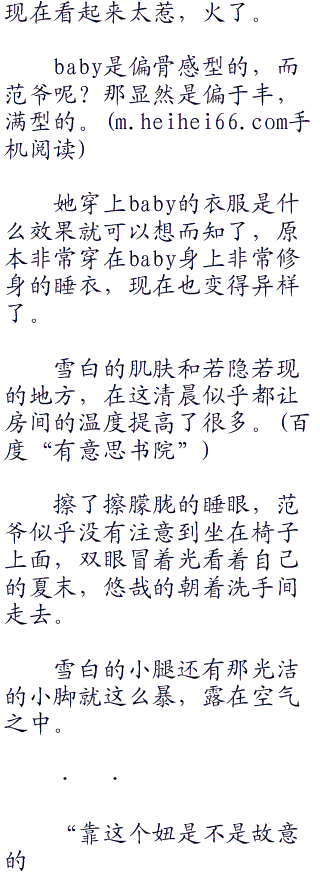 现在看起来太惹，火了。
baby是偏骨感型的，而
范爷呢？那显然是偏于丰，
满型的。(m.heihei66.com手
机阅读)
她穿上baby的衣服是什
么效果就可以想而知了，原
本非常穿在baby身上非常修
身的睡衣，现在也变得异样
了。
雪白的肌肤和若隐若现
的地方，在这清晨似乎都让
房间的温度提高了很多。(百
度“有意思书院”)
擦了擦朦胧的睡眼，范
爷似乎没有注意到坐在椅子
上面，双眼冒着光看着自己
的夏末，悠哉的朝着洗手间
走去。
雪白的小腿还有那光洁
的小脚就这么暴，露在空气
之中。
． ．
“靠这个妞是不是故意
的